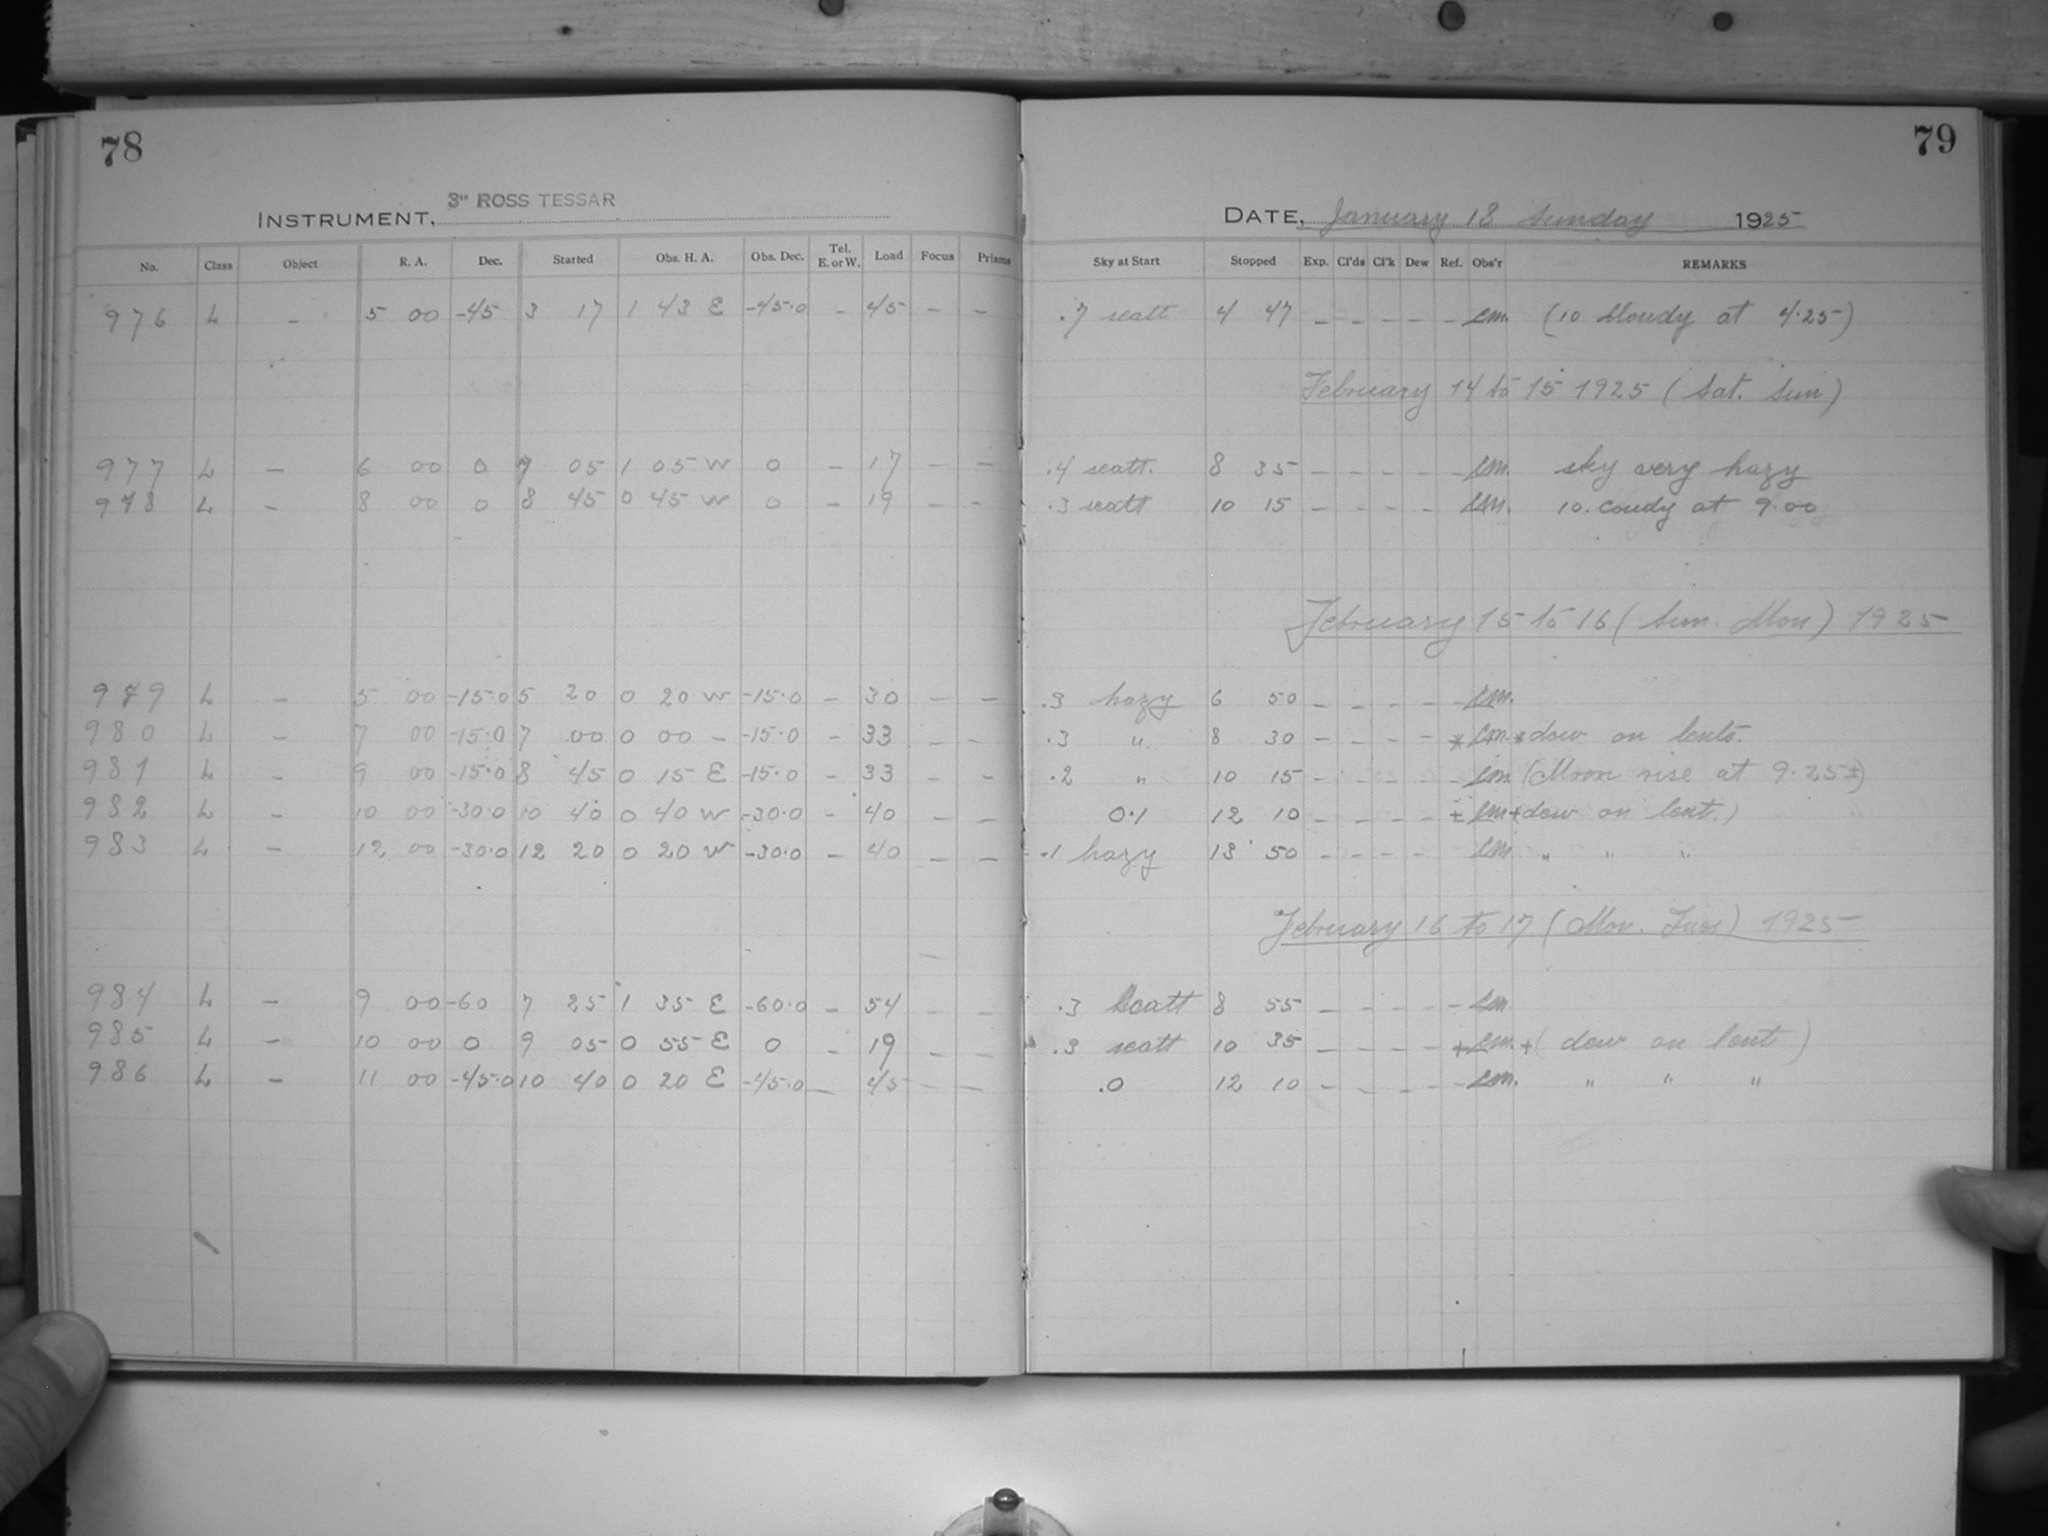 78
79
INSTRUMENT, 3" ROSS TESSAR
DATE, January 18 Sunday 1925
No. Class Object R. A. Dec. Started Obs. H. A. Obs. Dec. Tel. E. or W. Load Focus Prisms Sky at Start Stopped Exp. Cl'ds Cl'k Dew Ref. Obs'r REMARKS
976 L - 5 00 -45 3 17 1 43 E -45.0 - 45 - - .7 scatt 4 47 - - - - - cm. (10 cloudy at 4.25)
February 14 to 15 1925 (Sat. Sun)
977 L - 6 00 0 7 05 1 05 W 0 - 17 - - .4 scatt. 8 35 - - - - - cm. sky very hazy
978 L - 8 00 0 8 45 0 45 W 0 - 19 - - .3 scatt 10 15 - - - - cm. 10. coudy at 9.00
February 15 to 16 (Sun. Mon) 1925
979 L - 5 00 -15.0 5 20 0 20 W -15.0 - 30 - - .3 hazy 6 50 - - - - - cm.
980 L - 7 00 -15.0 7 00 0 00 - -15.0 - 33 - - .3 " 8 30 - - - - * cm. * dew on lents.
981 L - 9 00 -15.0 8 45 0 15 E -15.0 - 33 - - .2 " 10 15 - - - - - cm (Moon rise at 9.25±)
982 L - 10 00 -30.0 10 40 0 40 W -30.0 - 40 - - 0.1 12 10 - - - - + cm + dew on lent.)
983 L - 12 00 -30.0 12 20 0 20 W -30.0 - 40 - - .1 hazy 13 50 - - - - cm " " "
February 16 to 17 (Mon. Tues) 1925
984 L - 9 00 -60 7 25 1 35 E -60.0 - 54 - - .3 Scatt 8 55 - - - - - cm
985 L - 10 00 0 9 05 0 55 E 0 - 19 - - .3 scatt 10 35 - - - - + cm. + (dew on lent)
986 L - 11 00 -45.0 10 40 0 20 E -45.0 - 45 - - .0 12 10 - - - - - cm. " " "